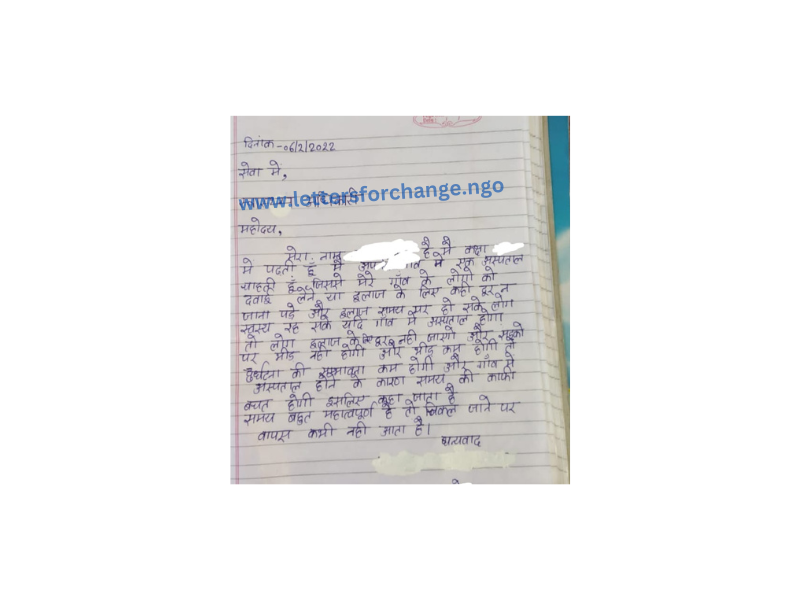 दिनांक-06/2/2022
सेवा में,
www.lettersforchange.ngo
महोदय,
मेरा नाम है मै कक्षा
मे पढती हूँ मै अपने गाँव मे एक अस्पताल
चाहती हूँ जिससे मेरे गाँव के लोगो को
दवाई लेने या इलाज के लिए कही दूर न
जाना पड़े और इलाज समय पर हो सके लोग
स्वस्थ रह सके यदि गाँव मे अस्पताल होगा
तो लोग इलाज के लिए दूर नही जाएगे और सड़को
पर भीड नही होगी और भीड कम होगी तो
दुर्घटना की सम्भावता कम होगी और गाँव मे
अस्पताल होने के कारण समय की काफी
बचत होगी इसलिए कहा जाता है
समय बहुत महात्वपूर्ण है तो निकल जाने पर
वापस कभी नही आता है।
धन्यवाद